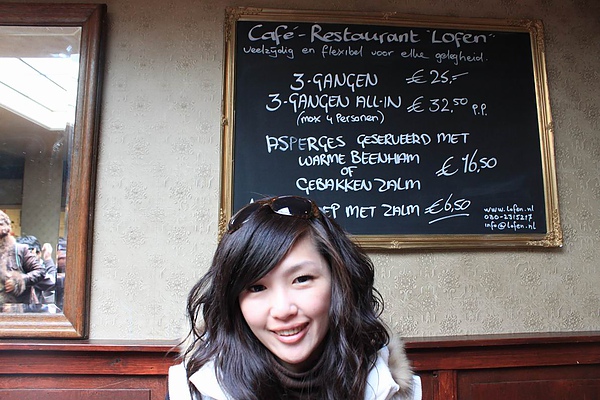 Café-Restaurant "Lofen"
veelzijdig en flexibel voor elke gelegheid.
3-GANGEN €25,-
3-GANGEN ALL-IN €32,50 p.p.
(max 4 Personen)
ASPERGES GESERVEERD MET
WARME BEENHAM
OF €16,50
GEBAKKEN ZALM
MET ZALM €6,50
www.lofen.nl
030-2315217
info@lofen.nl